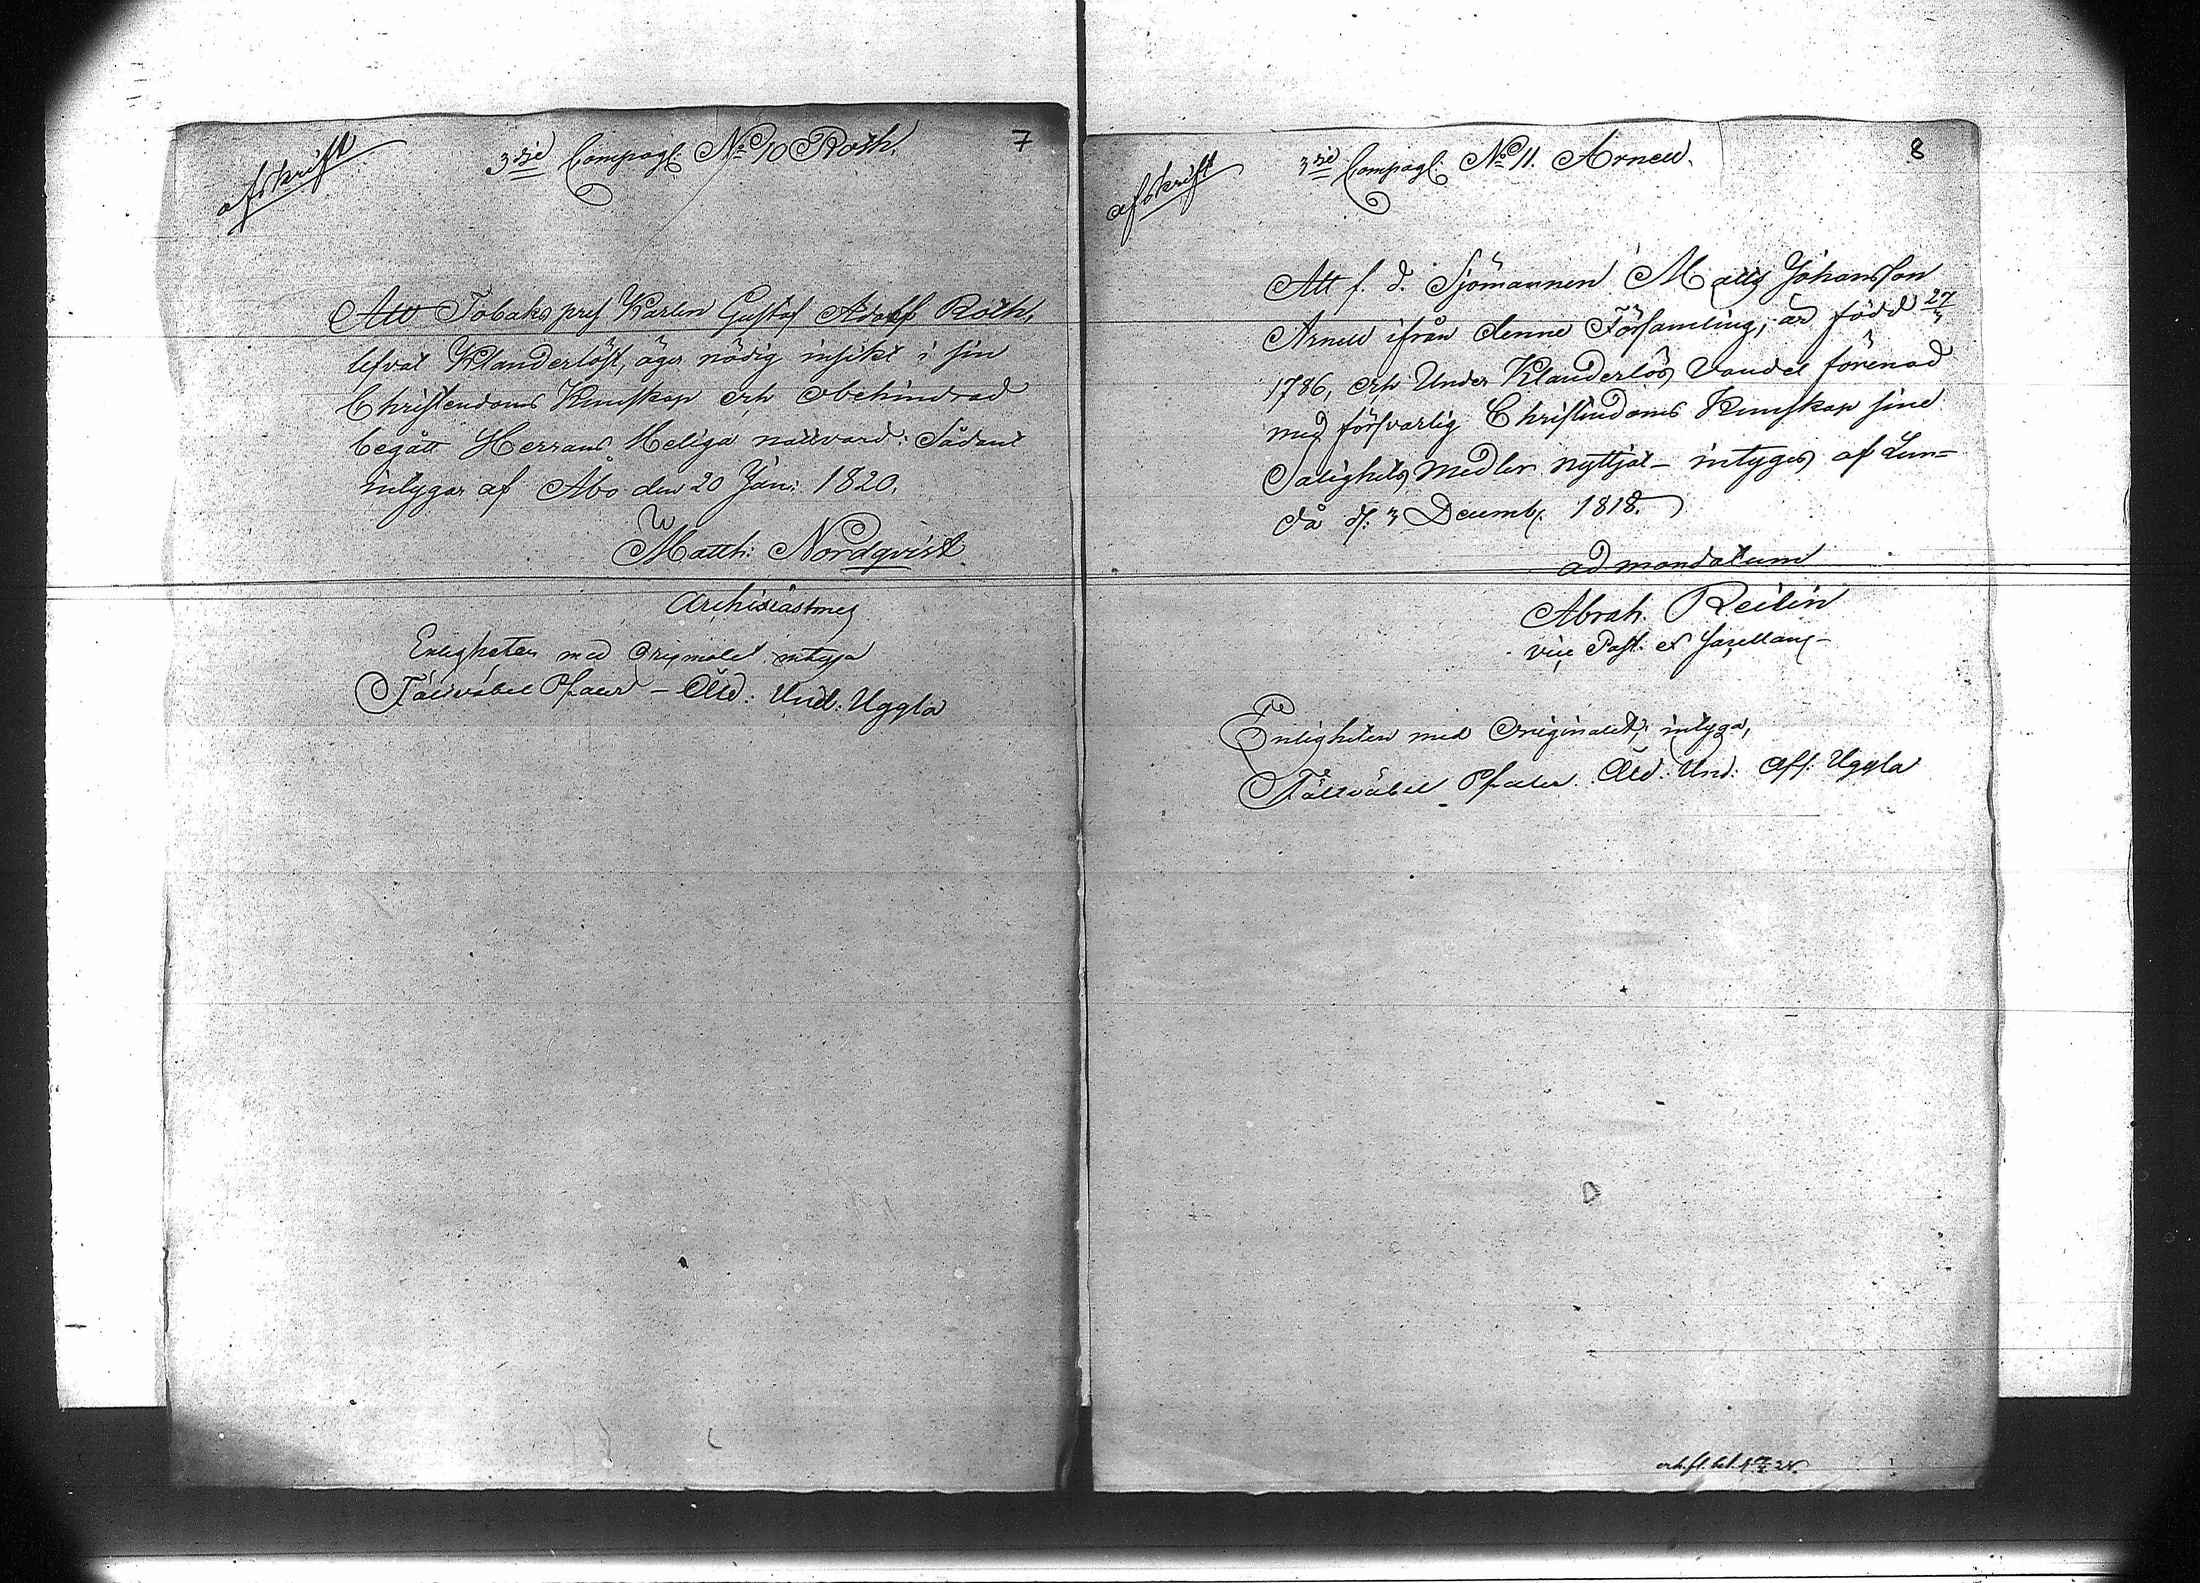 afskrift
3dje Compagt No 10 Roth.
7
Att Tobaks pres Karlen Gustaf Adolf Roth,
lefvat Klanderlöst, äger nödig insikt i sin
Christendoms Kunskap och obehindrad
begått Herrans Heliga nattvard: Sådant
intygar af Åbo den 20 Jan: 1820.
Matth: Nordqvist
Enligheten med Originalet intyga
Fältväbel Pfaler – Und: Uggla
afskrift
3dje Compagt: No 11. Arnell.
8
Att f. d. Sjömannen Matts Johansson
Arnell ifrån denne Församling, är född 27/3
1786, och Under Klanderlös Vandel förenad
med försvarlig Christendoms Kunskap sine
Salighets Medler nyttjat – intyges af Lun=
då d. 3 Decemb. 1818.
ad mandatum
Abrah. Reilin
vice Past. et Sacellan –
Enligheten med Originalet, intyga,
Fältväbel Pfaler. Und: Off: Uggla